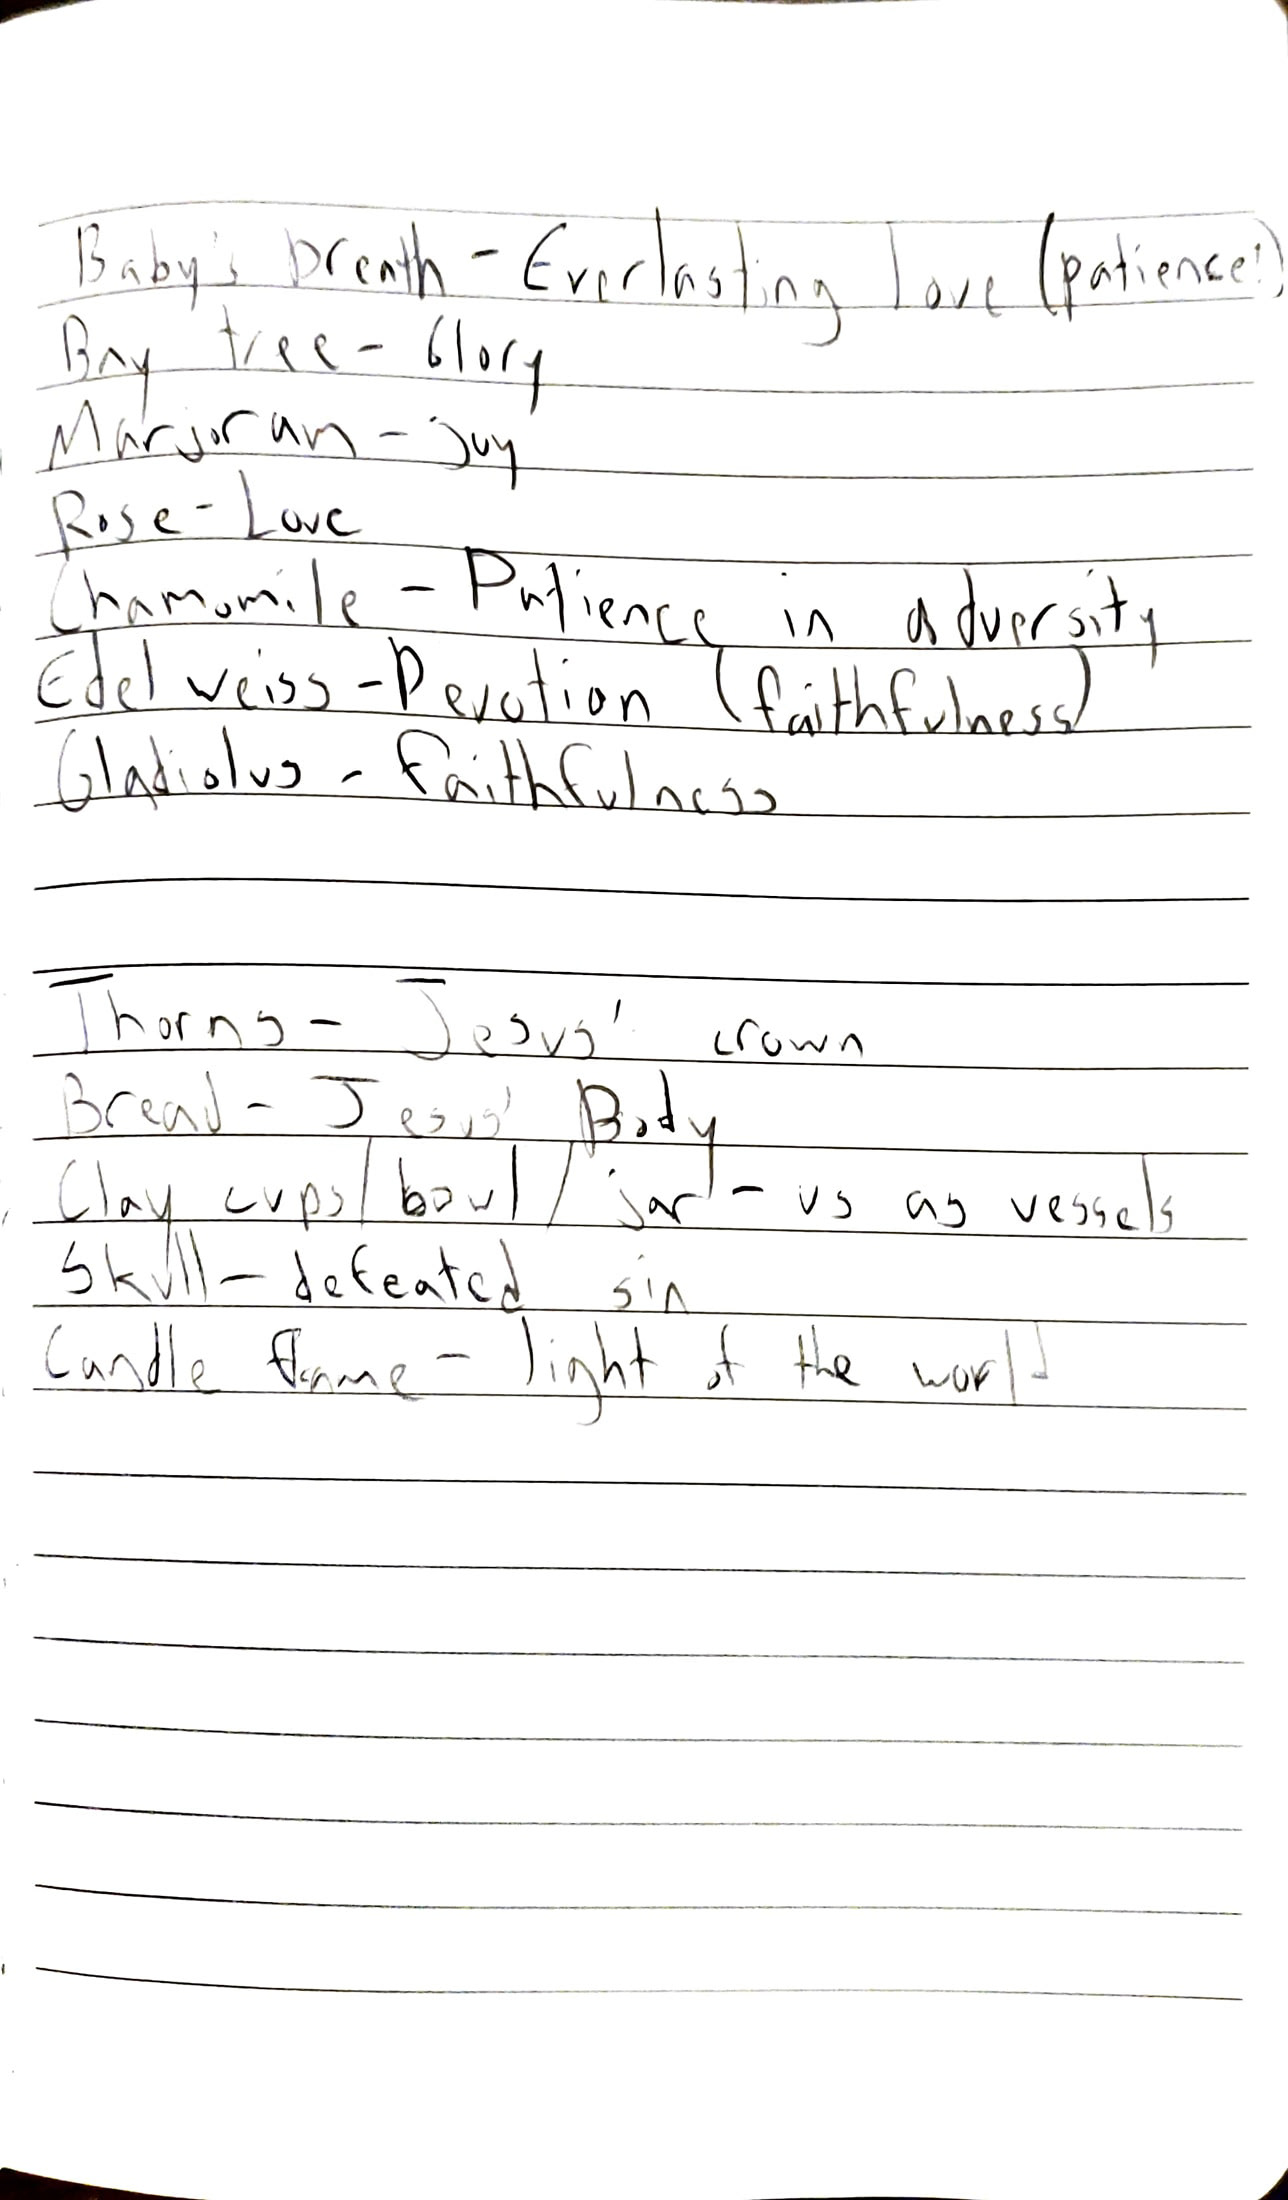 Baby's breath - Everlasting love (patience!)
Bay tree - Glory
Marjoram - joy
Rose - Love
Chamomile - Patience in adversity
Edelweiss - Devotion (faithfulness)
Gladiolus - faithfulness
Thorns - Jesus' crown
Bread - Jesus' Body
Clay cups/bowl/jar - us as vessels
Skull - defeated sin
Candle flame - light of the world